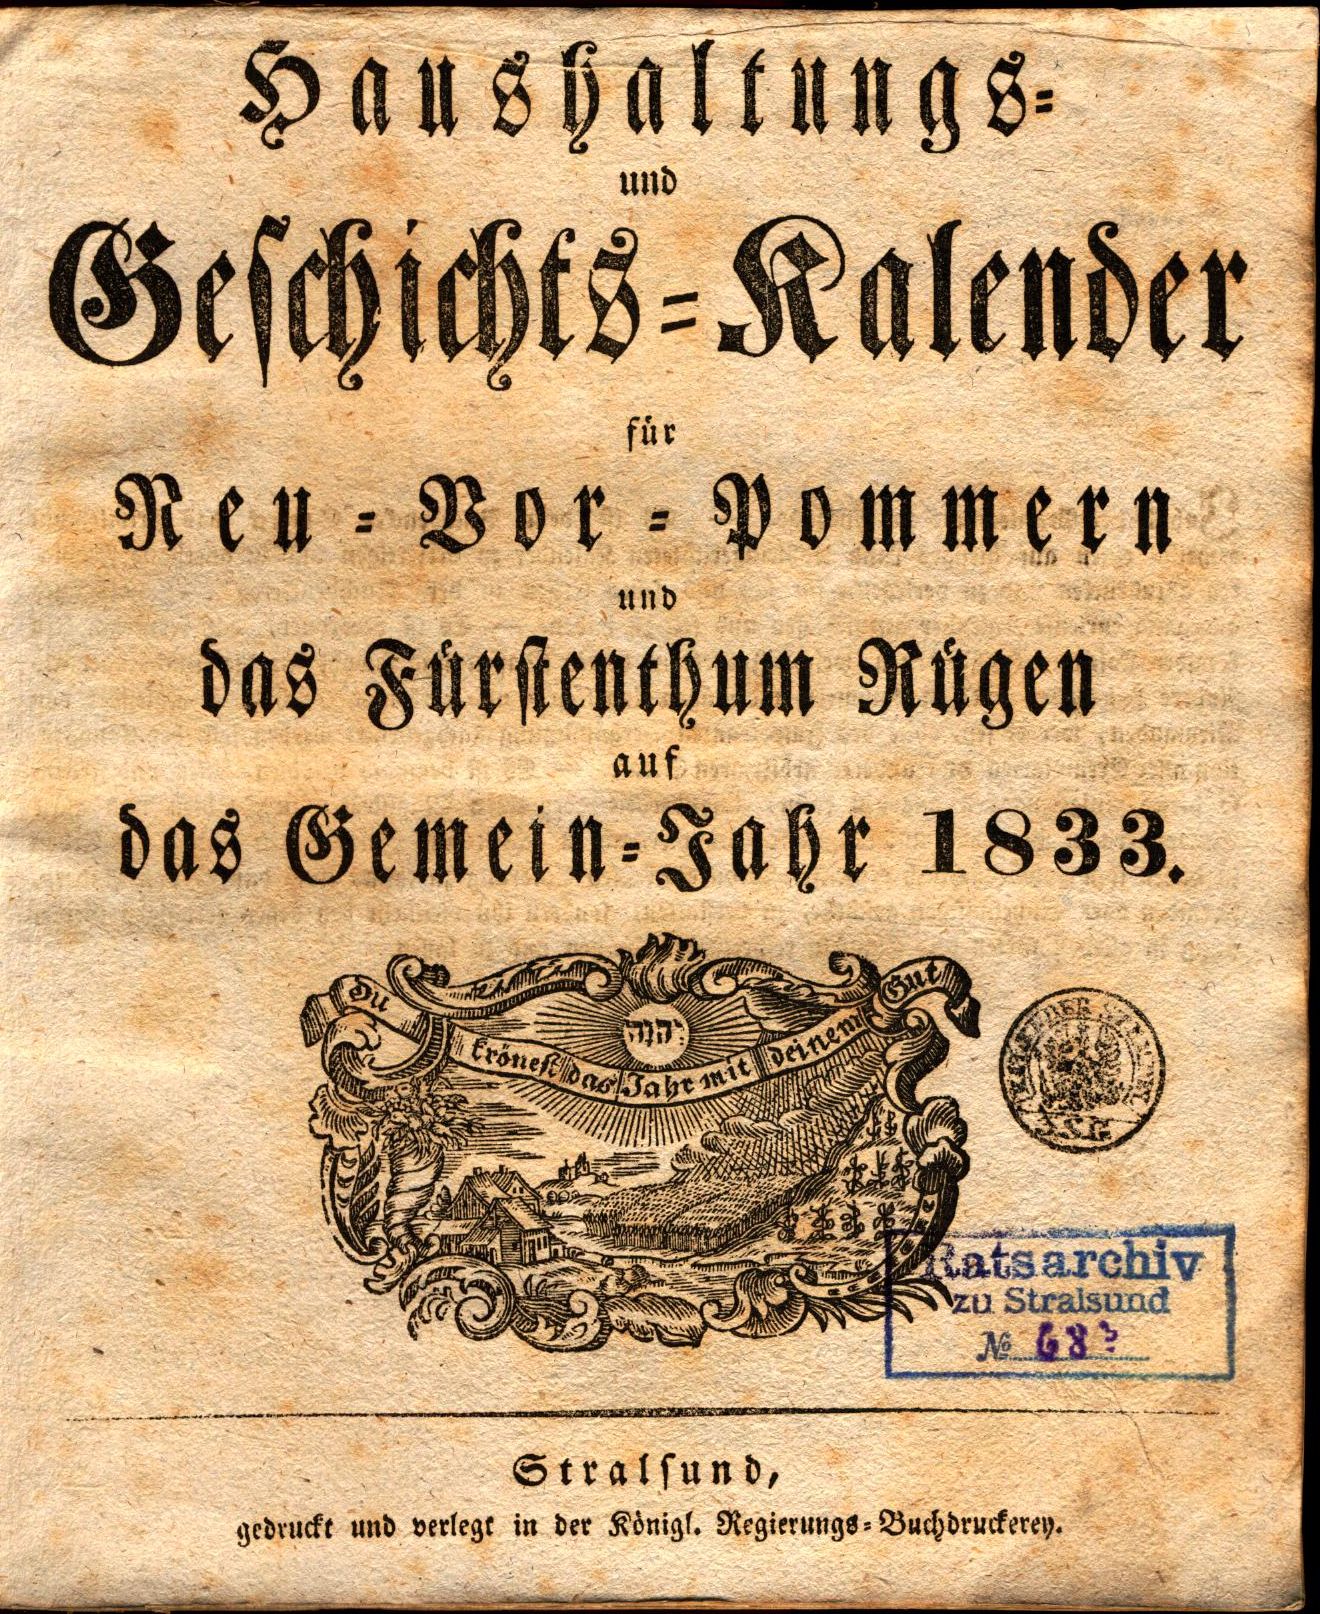 Haushaltungs=
und
Geſchichts=Kalender
für
Neu=Vor=Pommern
und
das Fürſtenthum Rügen
auf
das Gemein=Jahr 1833.
Du kröneſt das Jahr mit deinem Gut
יהוה
Ratsarchiv
zu Stralsund
№ 68³
Stralſund,
gedruckt und verlegt in der Königl. Regierungs=Buchdruckerey.